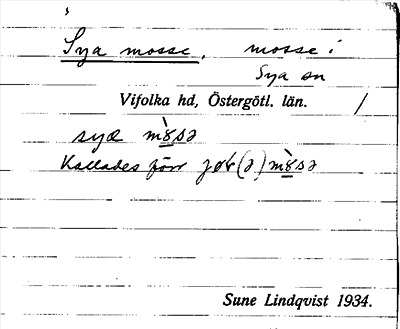 Sya mosse, mosse i
Sya sn
Vifolka hd, Östergötl. län.
syæ
Kallades förr
Sune Lindqvist 1934.